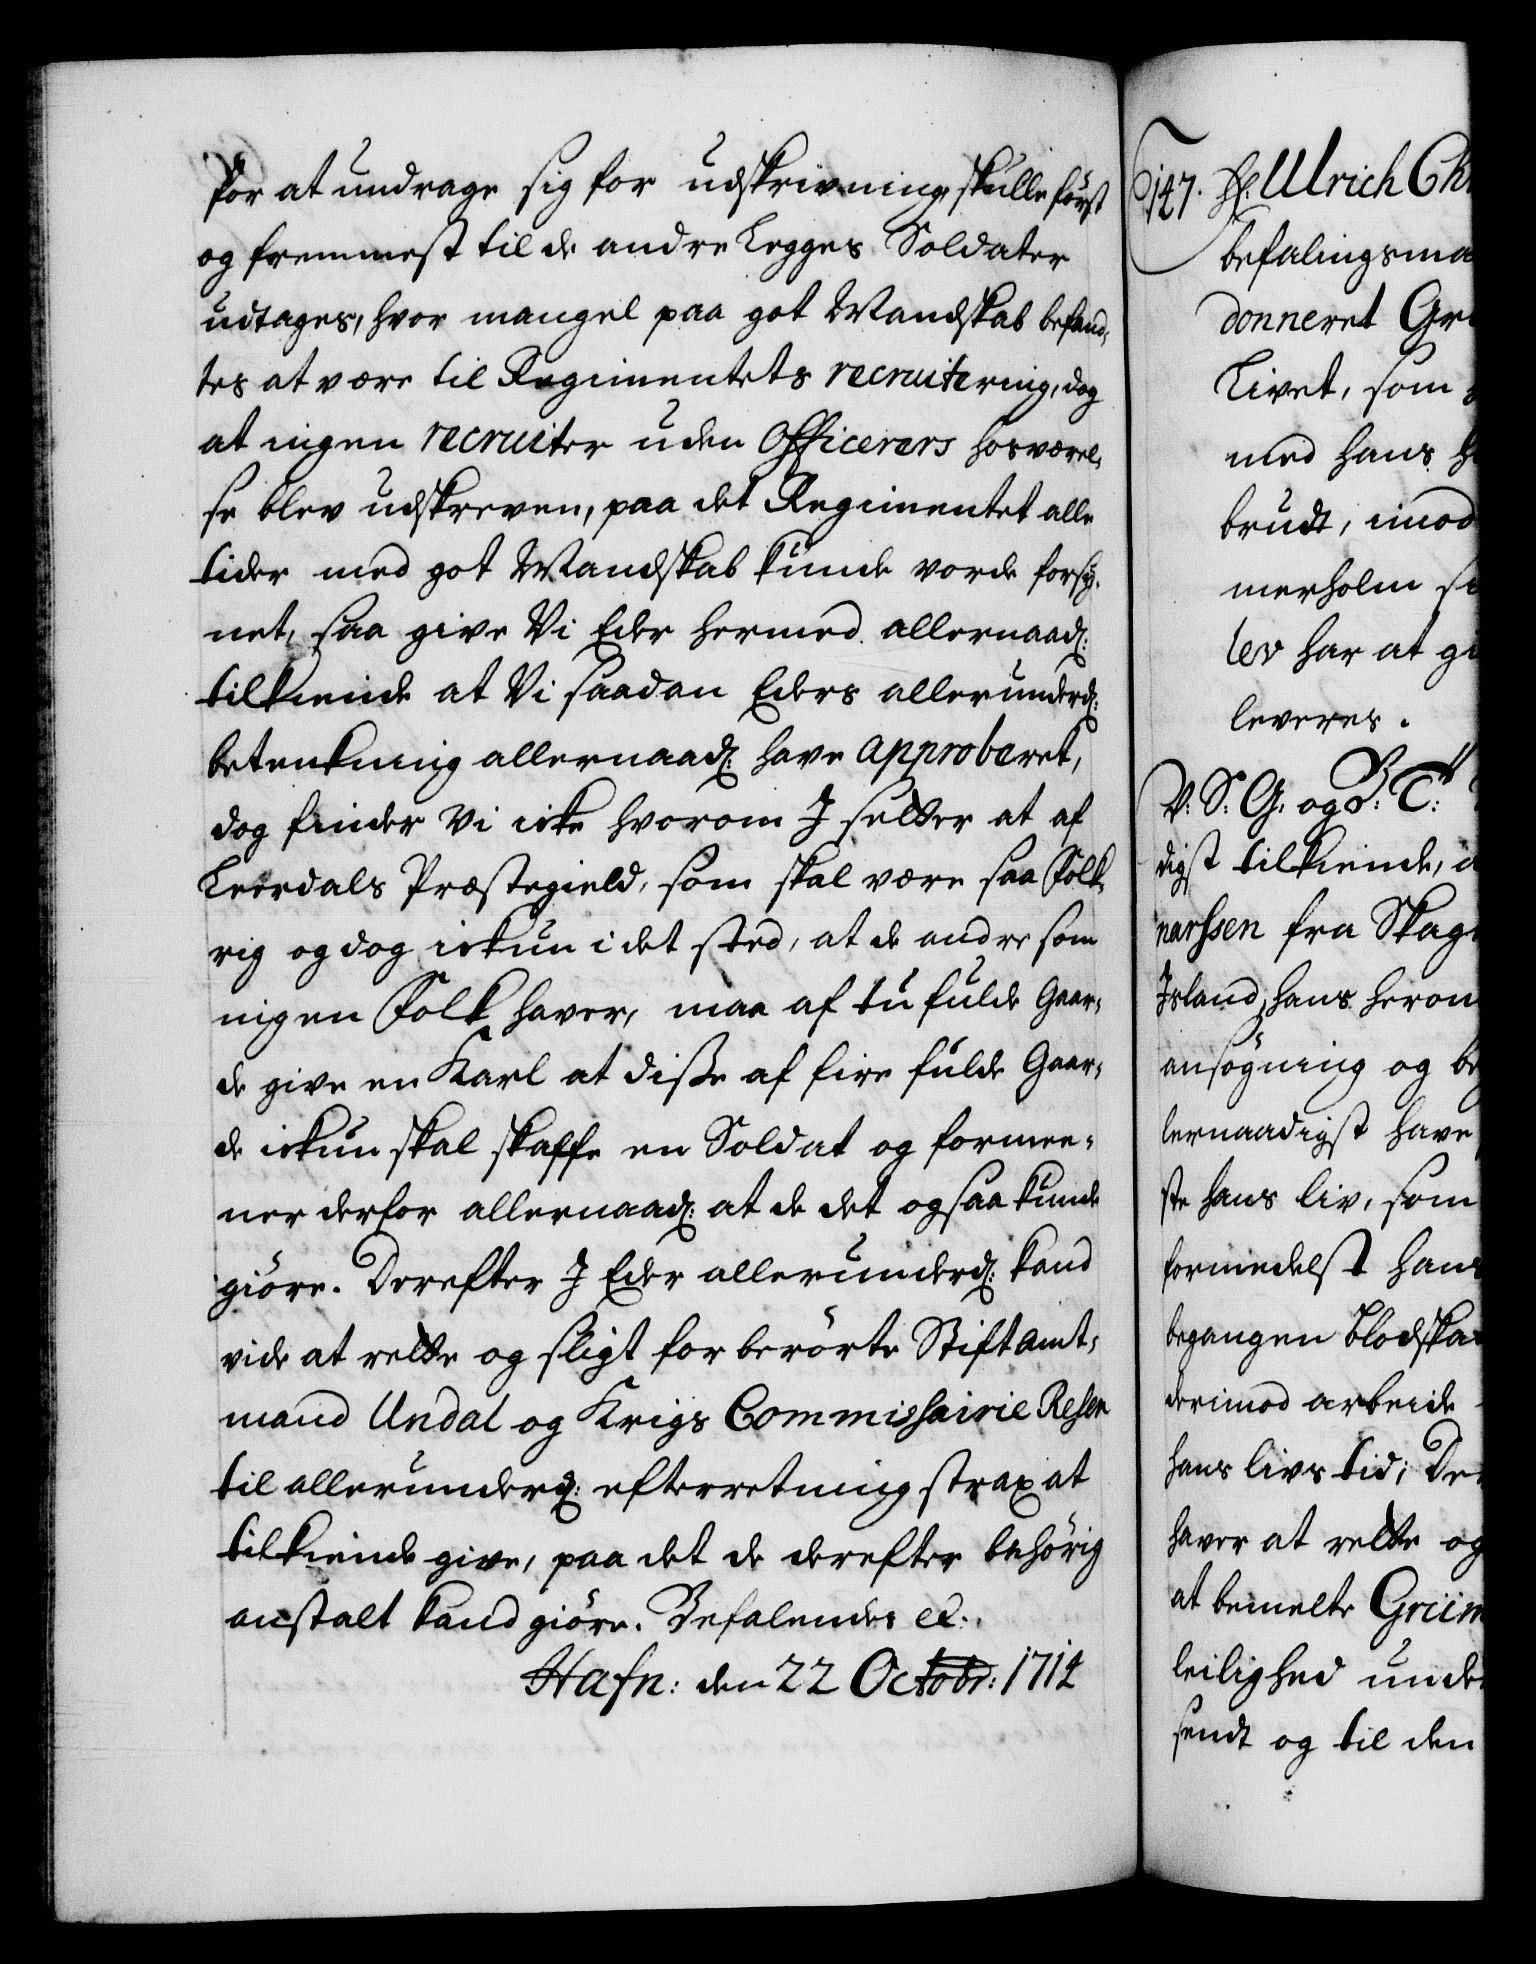 for at undrage sig for udskrivning, skulle først
og fremmest til de andre Legges Soldater
udtages, hvor mangel paa got Mandskab befand,
tes at være til Regimentets recruitering, dog
at ingen recruiter uden Officerers hosværel,
se blev udskreven, paa det Regimentet alle
tider med got Mandskab kunde vorde forsÿ,
net, saa give Vi Eder hermed allernaad:
tilkiende at Vi saadan Eders allerunderd:
betenkning allernaad: have approberet,
dog finder Vi icke hvorom I selver at af
Leerdals Præstegield, som skal være saa Folk,
rig og dog ickun i det sted, at de andre som
ingen Folk haver, maa af tu fulde Gaar,
de give en Karl at diße af fire fulde Gaar,
de ickun skal skaffe en Soldat og formee,
ner derfor allernaad: at de det ogsaa kunde
giöre. Derefter I Eder allerunderd: kand
vide at rette og sligt for berörte Stiftamt,
mand Undal og Krigs Commissairie Resen
til allerunderd: efterretning strax at
tilkiende give, paa det de derefter behörig
anstalt kand giöre. Befalendes etc:
Hafn: den 22 Octobr: 1714
147. Hr. Ulrich Ch
befalingsma
donneret Gr
Livet, som
med hans h
brudt, imod
merholm s
lev har at gi
leveres.
V: S: G: og B: T:
digst tilkiende, a
narssen fra Skag
Island, hans herom
ansögning og be
lernaadigst have
ste hans liv, som
formedelst hans
begangen Blodska
derimod arbeide
hans livs tid; De
haver at rette og
at bemelte Griim
leilighed unde
sendt og til den